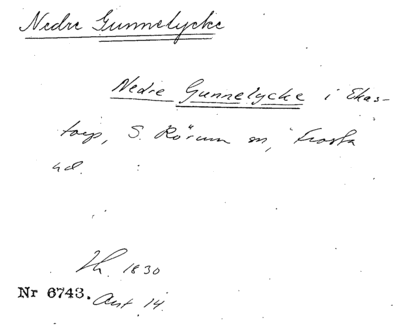 Nedre Gunnelycke
Nedre Gunnelycke i Ekas-
torp, S. Rörum sn, Frosta
hd.
1830
Nr 6743. Avt 14.